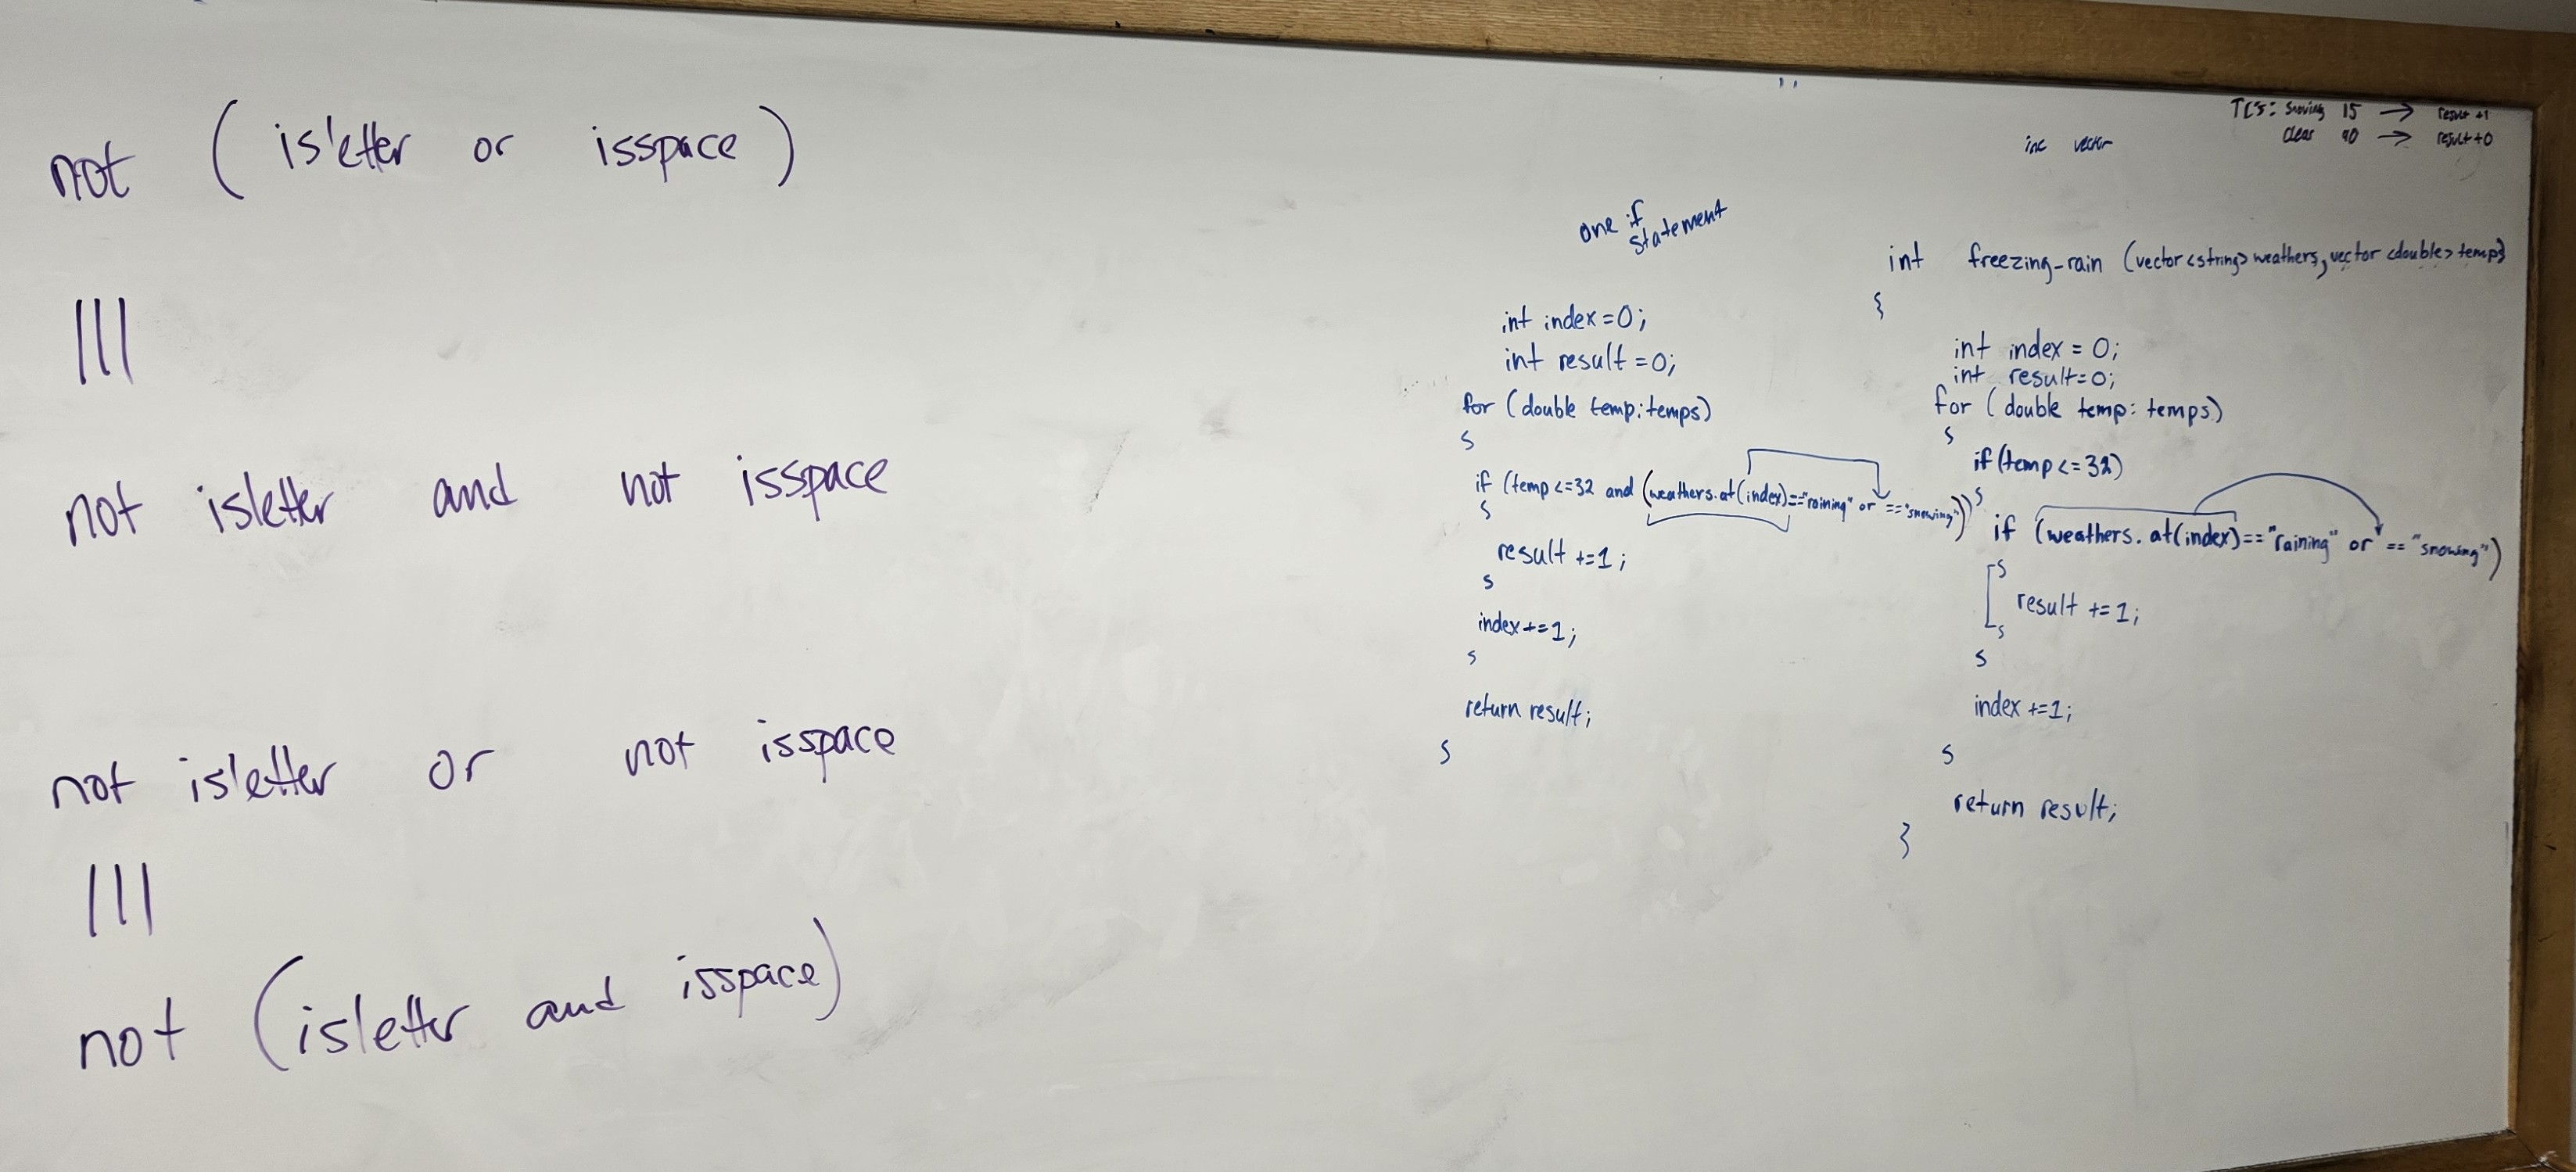 not ( isletter or isspace )
|||
not isletter and not isspace
not isletter or not isspace
|||
not (isletter and isspace)
one if
statement
int index=0;
int result=0;
for (double temp:temps)
{
if (temp<=32 and (weathers.at(index)=="raining" or =="snowing"))
{
result +=1;
}
index+=1;
}
return result;
}
TC's: Snowing 15 → result +1
clear 90 → result +0
inc vector
int freezing-rain (vector<string> weathers, vector<double> temps)
{
int index = 0;
int result=0;
for (double temp: temps)
{
if (temp<=32)
{
if (weathers.at(index)=="raining" or =="snowing")
{
result +=1;
}
}
index +=1;
}
return result;
}